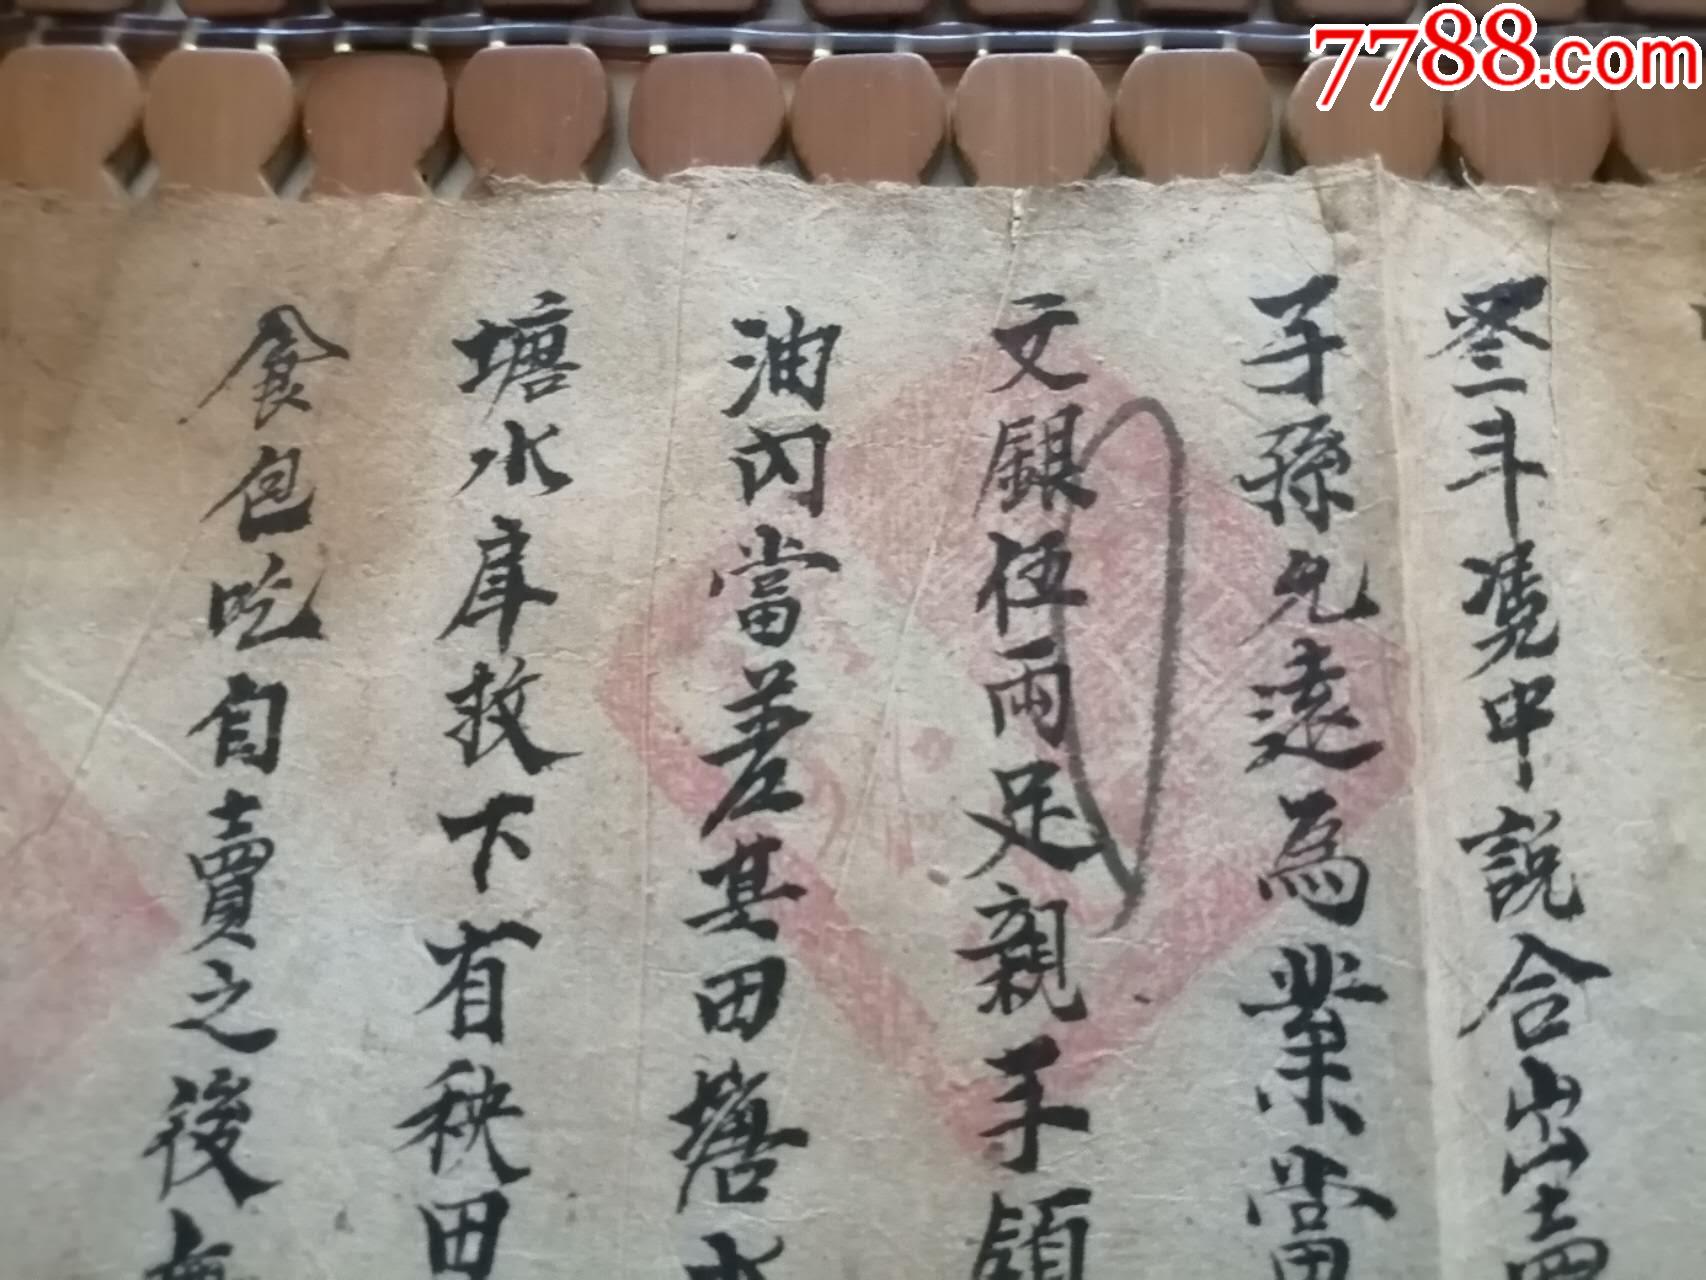 7788.com
二斗凴中說合出賣
子孫允遠為業當
文銀伍兩足親手領
油內當差其田塘水
塘水庠救下有秧田
食包吃自賣之後